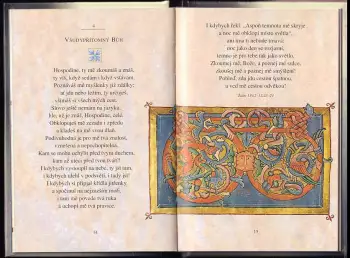 VŠUDYPŘÍTOMNÝ BŮH
Hospodine, ty mě zkoumáš a znáš,
ty víš, kdy sedám i když vstávám.
Poznáváš mé myšlenky již zdálky;
ať jdu nebo ležím, ty
všímáš si všech mých cest.
Slovo ještě nemám na jazyku,
hle, už je znáš, Hospodine, celé.
Obklopuješ mě zezadu i zpředu
a kladeš na mě svou dlaň.
vznešená a nepochopitelná.
Kam se mohu skrýt před tvým duchem,
kam až utéci před tvou tváří?
I kdybych vystoupil na nebe, ty jsi tam,
i kdybych ulehl v podsvětí, i tady jsi!
I kdybych si připjal křídla jitřenky
a spočinul na nejzazším moři,
i tam mě povede tvá ruka
a uchopí mě tvá pravice.
I kdybych řekl: „Aspoň temnota mě skryje
a noc mě obklopí místo světla“,
ani tma ti nebude tmavá
noc jako den se rozjasní,
temno je pro tebe tak jako světlo.
Zkoumej mě, Bože, a poznej mé srdce,
zkoušej mě a poznej mé smýšlení!
Pohleď, zda jdu cestou odbojnou,
a veď mě cestou odvěkou!